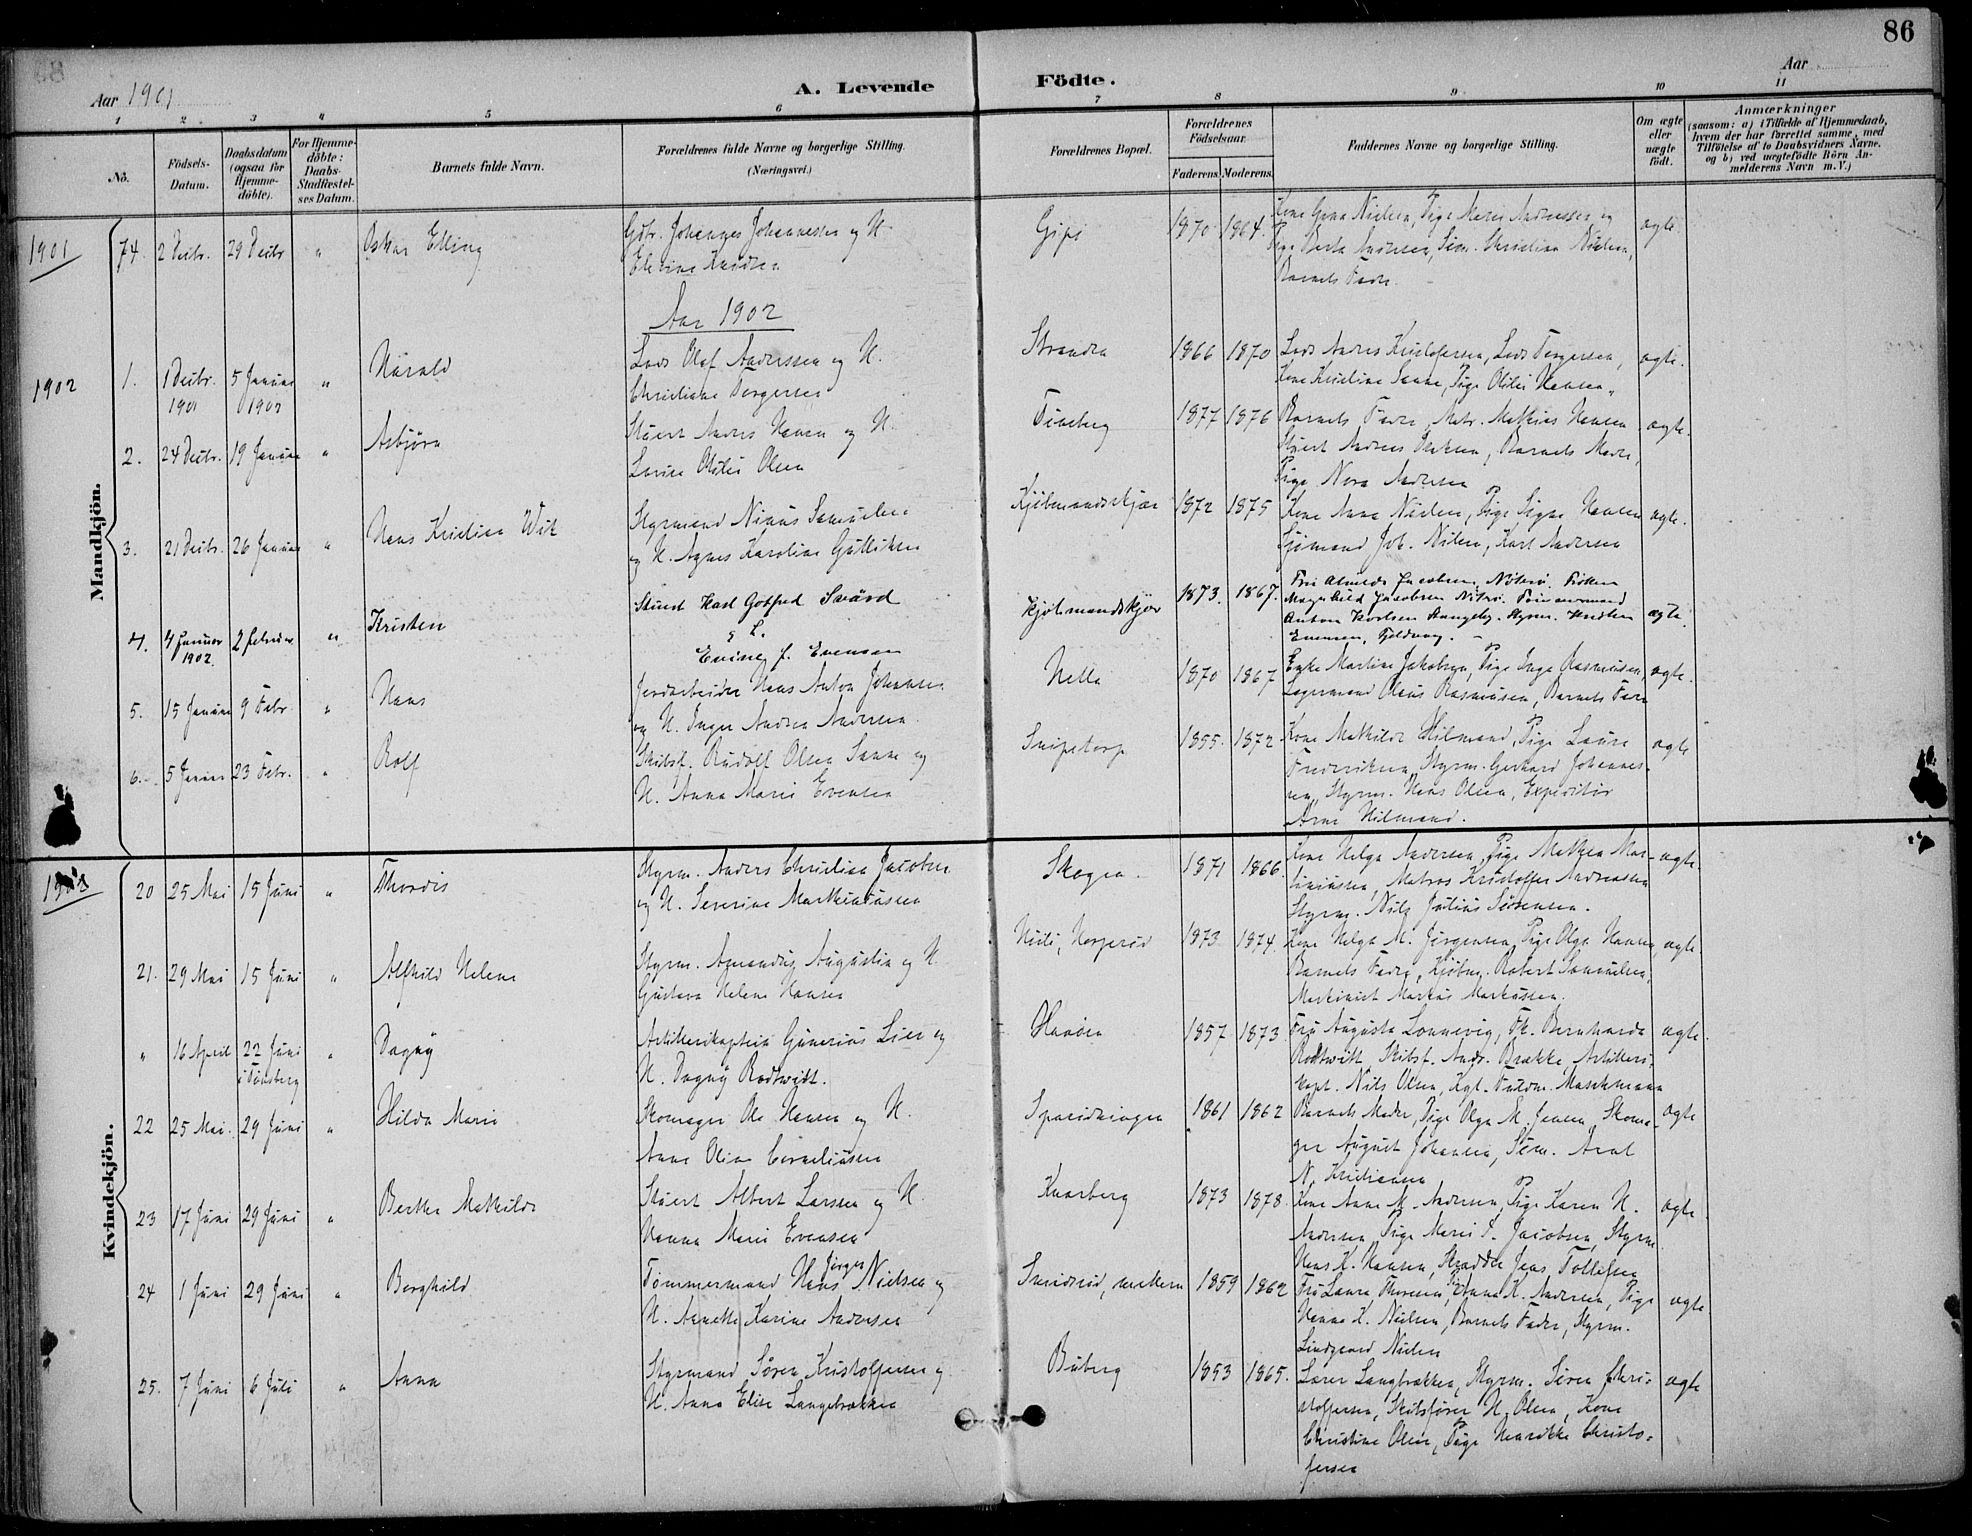 86
Aar 1901
A. Levende Födte.
Aar
1 2 3 4 5 6 7 8 9 10 11
No.
Födsels-Datum.
Daabsdatum (ogsaa for Hjemmedöbte).
For Hjemmedöbte: Daabs-Stadfæstelses Datum.
Barnets fulde Navn.
Forældrenes fulde Navne og borgerlige Stilling. (Næringsvei.)
Forældrenes Bopæl.
Forældrenes Födselsaar.
Faderens. Moderens.
Faddernes Navne og borgerlige Stilling.
Om ægte eller uægte födt.
Anmærkninger
(saasom: a) i Tilfælde af Hjemmedaab, hvem der har forrettet samme, med Tilföielse af to Daabsvidners Navne, og b) ved uægtefödte Börn Anmelderens Navn m. V.)
Mandkjön.
1901
74. 2 Decbr. 29 Decbr " Oskar Elling
Gbr. Johannes Johannessen og H.
Gips 1870 1864.
Kone Gina Nielsen, Pige Marie Andreassen og
Pige Berta Andersen, Søm. Christian Nielsen,
Barnets Fader.
ægte.
Aar 1902
1902
1. 1 Decbr. 1901 5 Januar 1902 " Harald
Lods Olaf Anderssen og H.
Christiane Torgersen
Stranden 1866 1870
Lods Anders Kristofersen, Lods Torgersen,
Kone Kristine Sanne, Pige Otilie Hansen.
ægte.
2. 24 Decbr. 19 Januar " Asbjørn
Stuert Anders Hansen og H.
Laura Otilie Olsen
Tineberg 1877 1876
Barnets Fader, Matr. Mathias Hansen
Stuert Anders Isaksen, Barnets Moder,
Pige Nora Andersen
ægte.
3. 21 Decbr. 26 Januar " Hans Kristian Wik
Styrmand Ninus Samuelsen
og H. Agnes Karoline Gulliksen
Kjølmandskjær 1872 1875
Kone Anna Nielsen, Pige Signe Hansen
Sjømand Joh. Nilsen, Karl Andersen
ægte.
4. 4 Januar 1902. 2 Februar " Kristen
Stuert Karl Gotfred Swärd
g L.
Evine J. Evensen
Kjølmandskjær 1873. 1867.
Fru Alvilde Jacobsen, Nøterø. Frøken
Magnhild Jacobsen Nøterø. Tømmermand
Anton Karlsen Stangeby. Styrm. Kristen
Evensen, Fjeldvog.
ægte.
5. 15 Januar 9 Febr. " Hans
Jordarbeider Hans Anton Johansen
og H. Inger Andrea Andersen
Hella 1870 1867
Enke Martine Jakobsen, Pige Inga Rasmussen,
Lagermand Olaus Rasmussen, Barnets Fader
ægte.
6. 5 Januar 23 Febr. " Rolf
Skibsf. Rudolf Olsen Sanne og
H. Anna Marie Evensen
Snipetorp 1855. 1872.
Kone Mathilde Hilmand, Pige Laura
Frederiksen, Styrm. Gerhard Johannes-
sen, Styrm. Hans Olsen, Expeditør
Arne Hilmand.
ægte
Kvindekjön.
20 25 Mai 15 Juni " Thordis
Styrm. Anders Christian Jacobsen
og H. Severine Mathiasen
Skogen. 1871 1866.
Kone Helga Andersen, Pige Mathea Mar-
tiniussen, Matros Kristoffer Andreassen
Styrm. Nils Julius Sørensen.
ægte.
21. 29 Mai 15 Juni " Alfhild Helene
Styrm. Amandus Augustin og H.
Gustava Helene Hansen
1873. 1874.
Kone Helga M. Jørgensen, Pige Olga Hansen,
Barnets Fader, Kjøbm. Robert Samuelsen,
Maskinist Markus Markussen.
ægte.
" 16 April 22 Juni i Tønsberg " Dagny
Artillerikaptein Gunerius Lier og
H. Dagny Rodtwitt.
1857 1873
Fru Augusta Lonnevig, Frk. Bernharda
Rodtwitt, Skibsf. Andr. Brække, Artilleri-
kapt. Nils Olsen, Kgl. Fuldm. Maschmann
ægte.
22 25 Mai. 29 Juni " Hilda Marie
Skomager Ole Hansen og H.
Anne Oline Corneliussen
1861 1862
Barnets Moder, Pige Olga M. Jensen, Skoma-
ger August Johansen, Søm. Axel
N. Kristiansen
ægte
23 17 Juni 29 Juni " Berthe Mathilde
Stuert Albert Larsen og H.
Hanna Marie Evensen
Knarberg 1873 1878.
Kone Anne M. Andersen, Pige Karen H.
Andersen, Pige Marie S. Jacobsen, Styrm
Hans K. Hansen, Skrædder Jens Tollefsen
ægte.
24 1 Juni 29 Juni " Borghild
Tømmermand Hans Jørgen Nielsen og
H. Anette Karine Andersen
Smidsrød, 1859 1862
Fru Laura Thoresen, Anna K. Andersen, Pige
Hanna K. Nielsen, Barnets Fader, Styrm.
Lindgaard Nielsen
ægte
25. 7 Juni 6 Juli " Anna
Styrmand Søren Kristoffersen og
H. Anna Elise Langebrække
Buberg 1853 1865.
Lærer Langbrækken, Styrm. Søren Chri-
stoffersen, Skibsfører H. Olsen, Kone
Christine Olsen, Pige Marikke Christo-
fersen
ægte